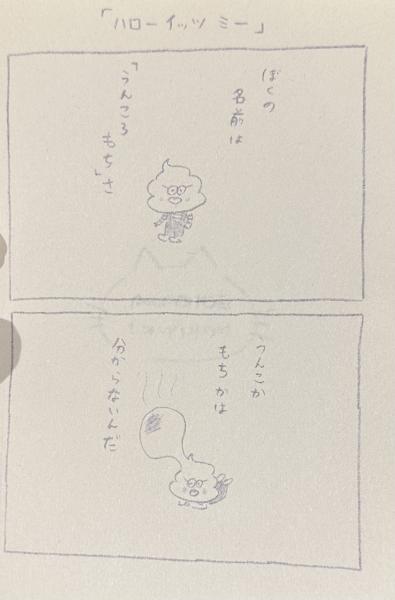 「ハローイッツ ミー」
ぼくの
名前は
「うんころ
もち」さ
うんこか
もちかは
分からないんだ